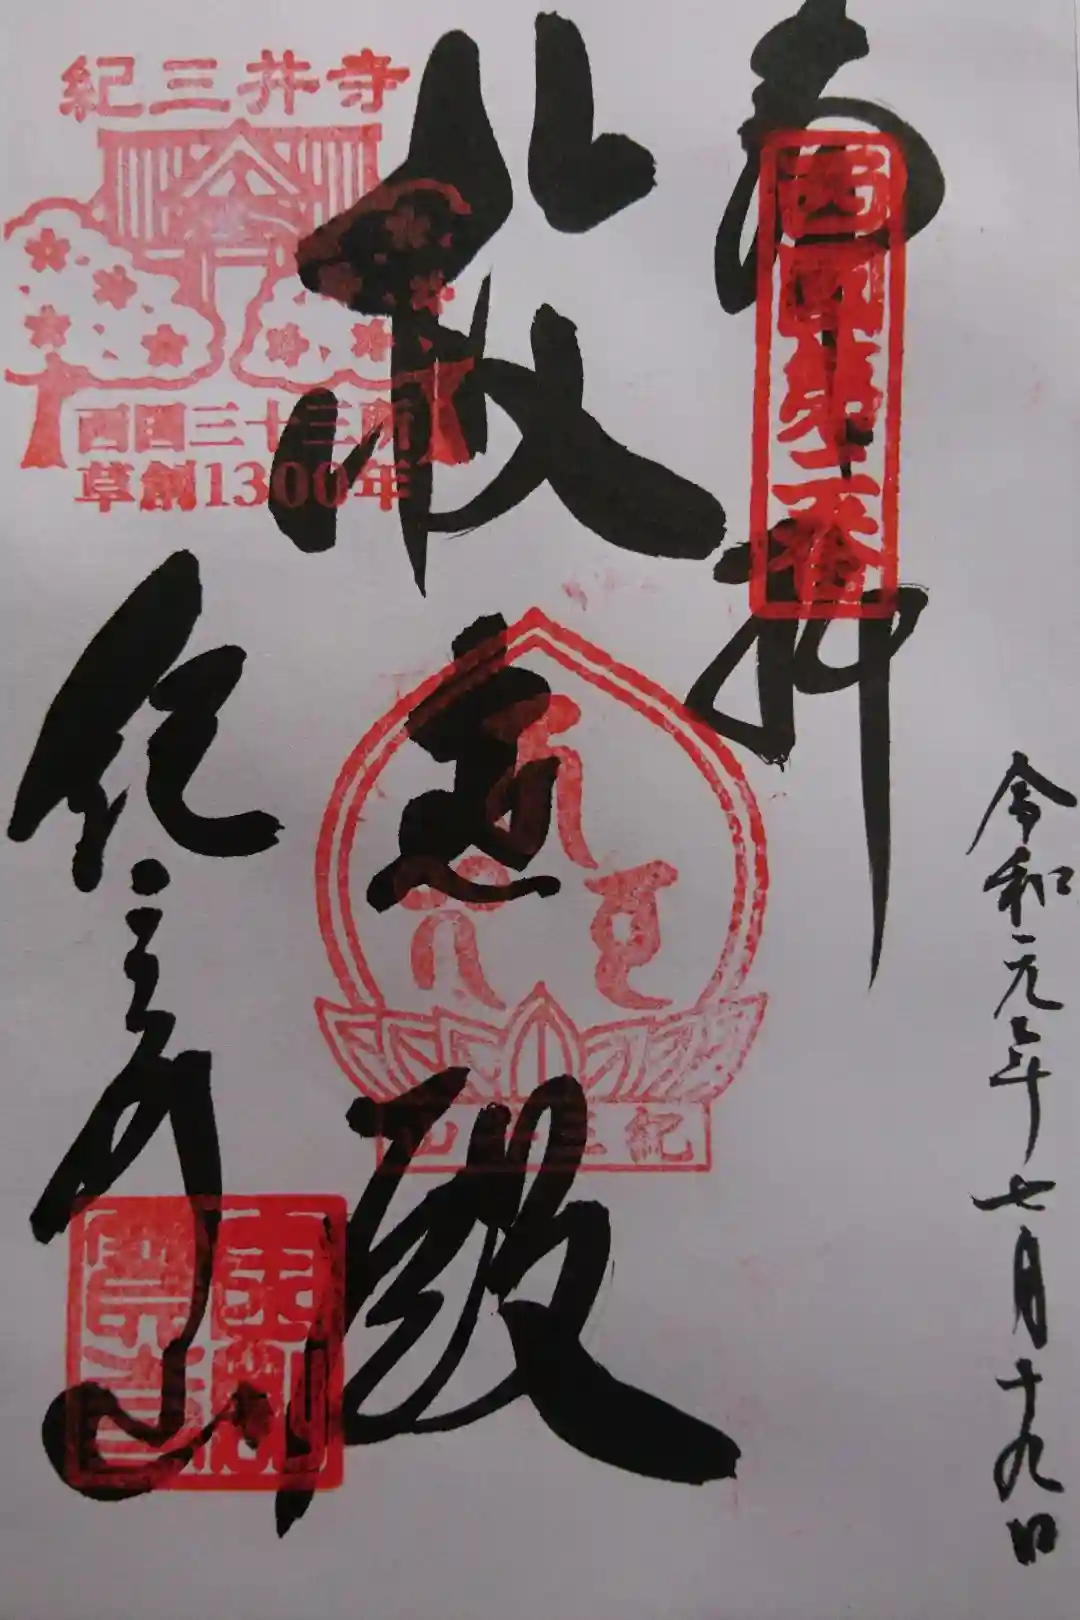 令和元年七月十九日
奉拝
西国第二番
救世殿
紀三井寺
紀三井山
紀三井寺
西国三十三所
草創1300年